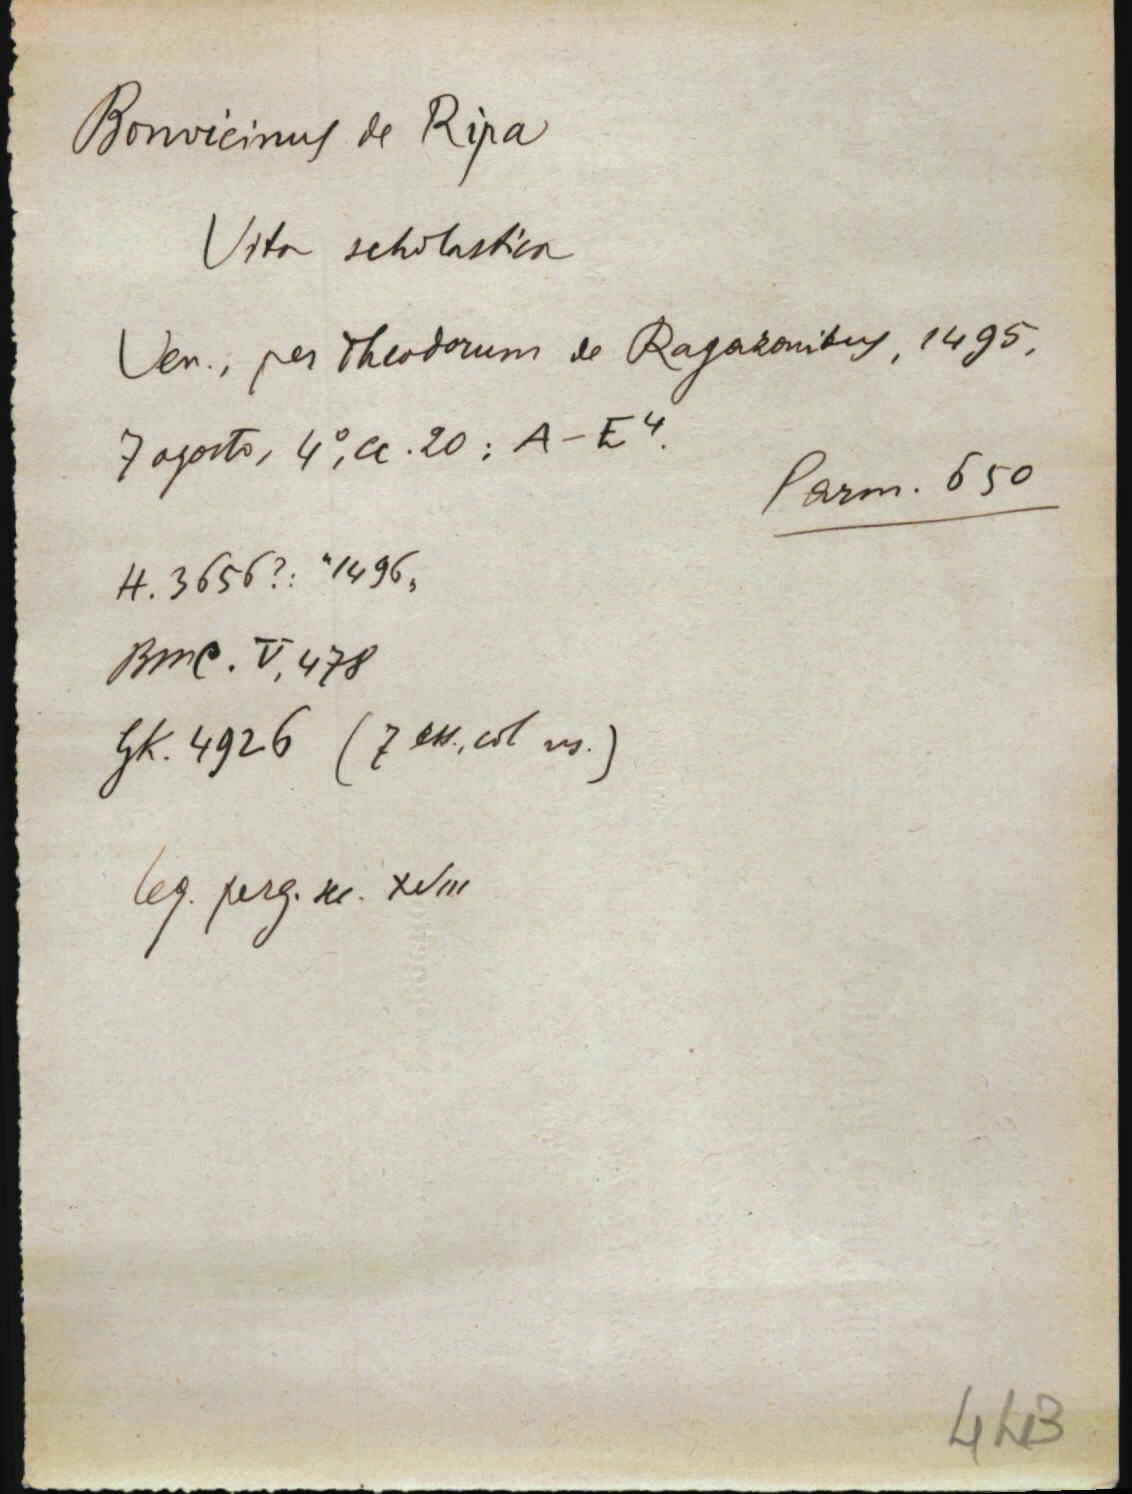 Bonvicinus de Ripa
Vita scholastica
Ven., per Theodorum de Ragazonibus, 1495,
7 agosto, 4°, cc. 20 : A-E⁴.
Parm. 650
H. 3656?: "1496„
BMC. V, 478
GK. 4926 (7 ess., col ns.)
leg. perg. sec. XVIII